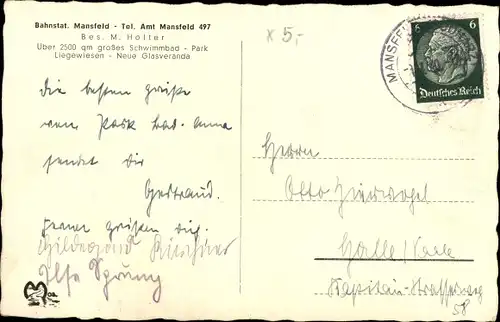 Bahnstat. Mansfeld - Tel. Amt Mansfeld 497
Bes. M. Hölter
Über 2500 qm großes Schwimmbad - Park
Liegewiesen - Neue Glasveranda
x 5,-
MANSFEL
6 6
Deutsches Reich
Die besten Grüße
vom Park Bad. Anna
sendet Dir
Gertraud.
Ferner grüßen Dich
Hildegard
Ilse Sprung
Herrn
Otto Ziervogel
Halle/Saale
58